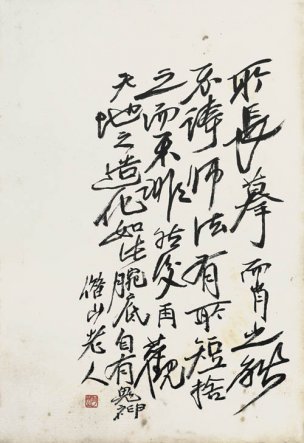 所長摹而肖之能
不謗師法有所短捨
之而不誹然後再觀
天地之造化如此腕底自有鬼神
儲山老人